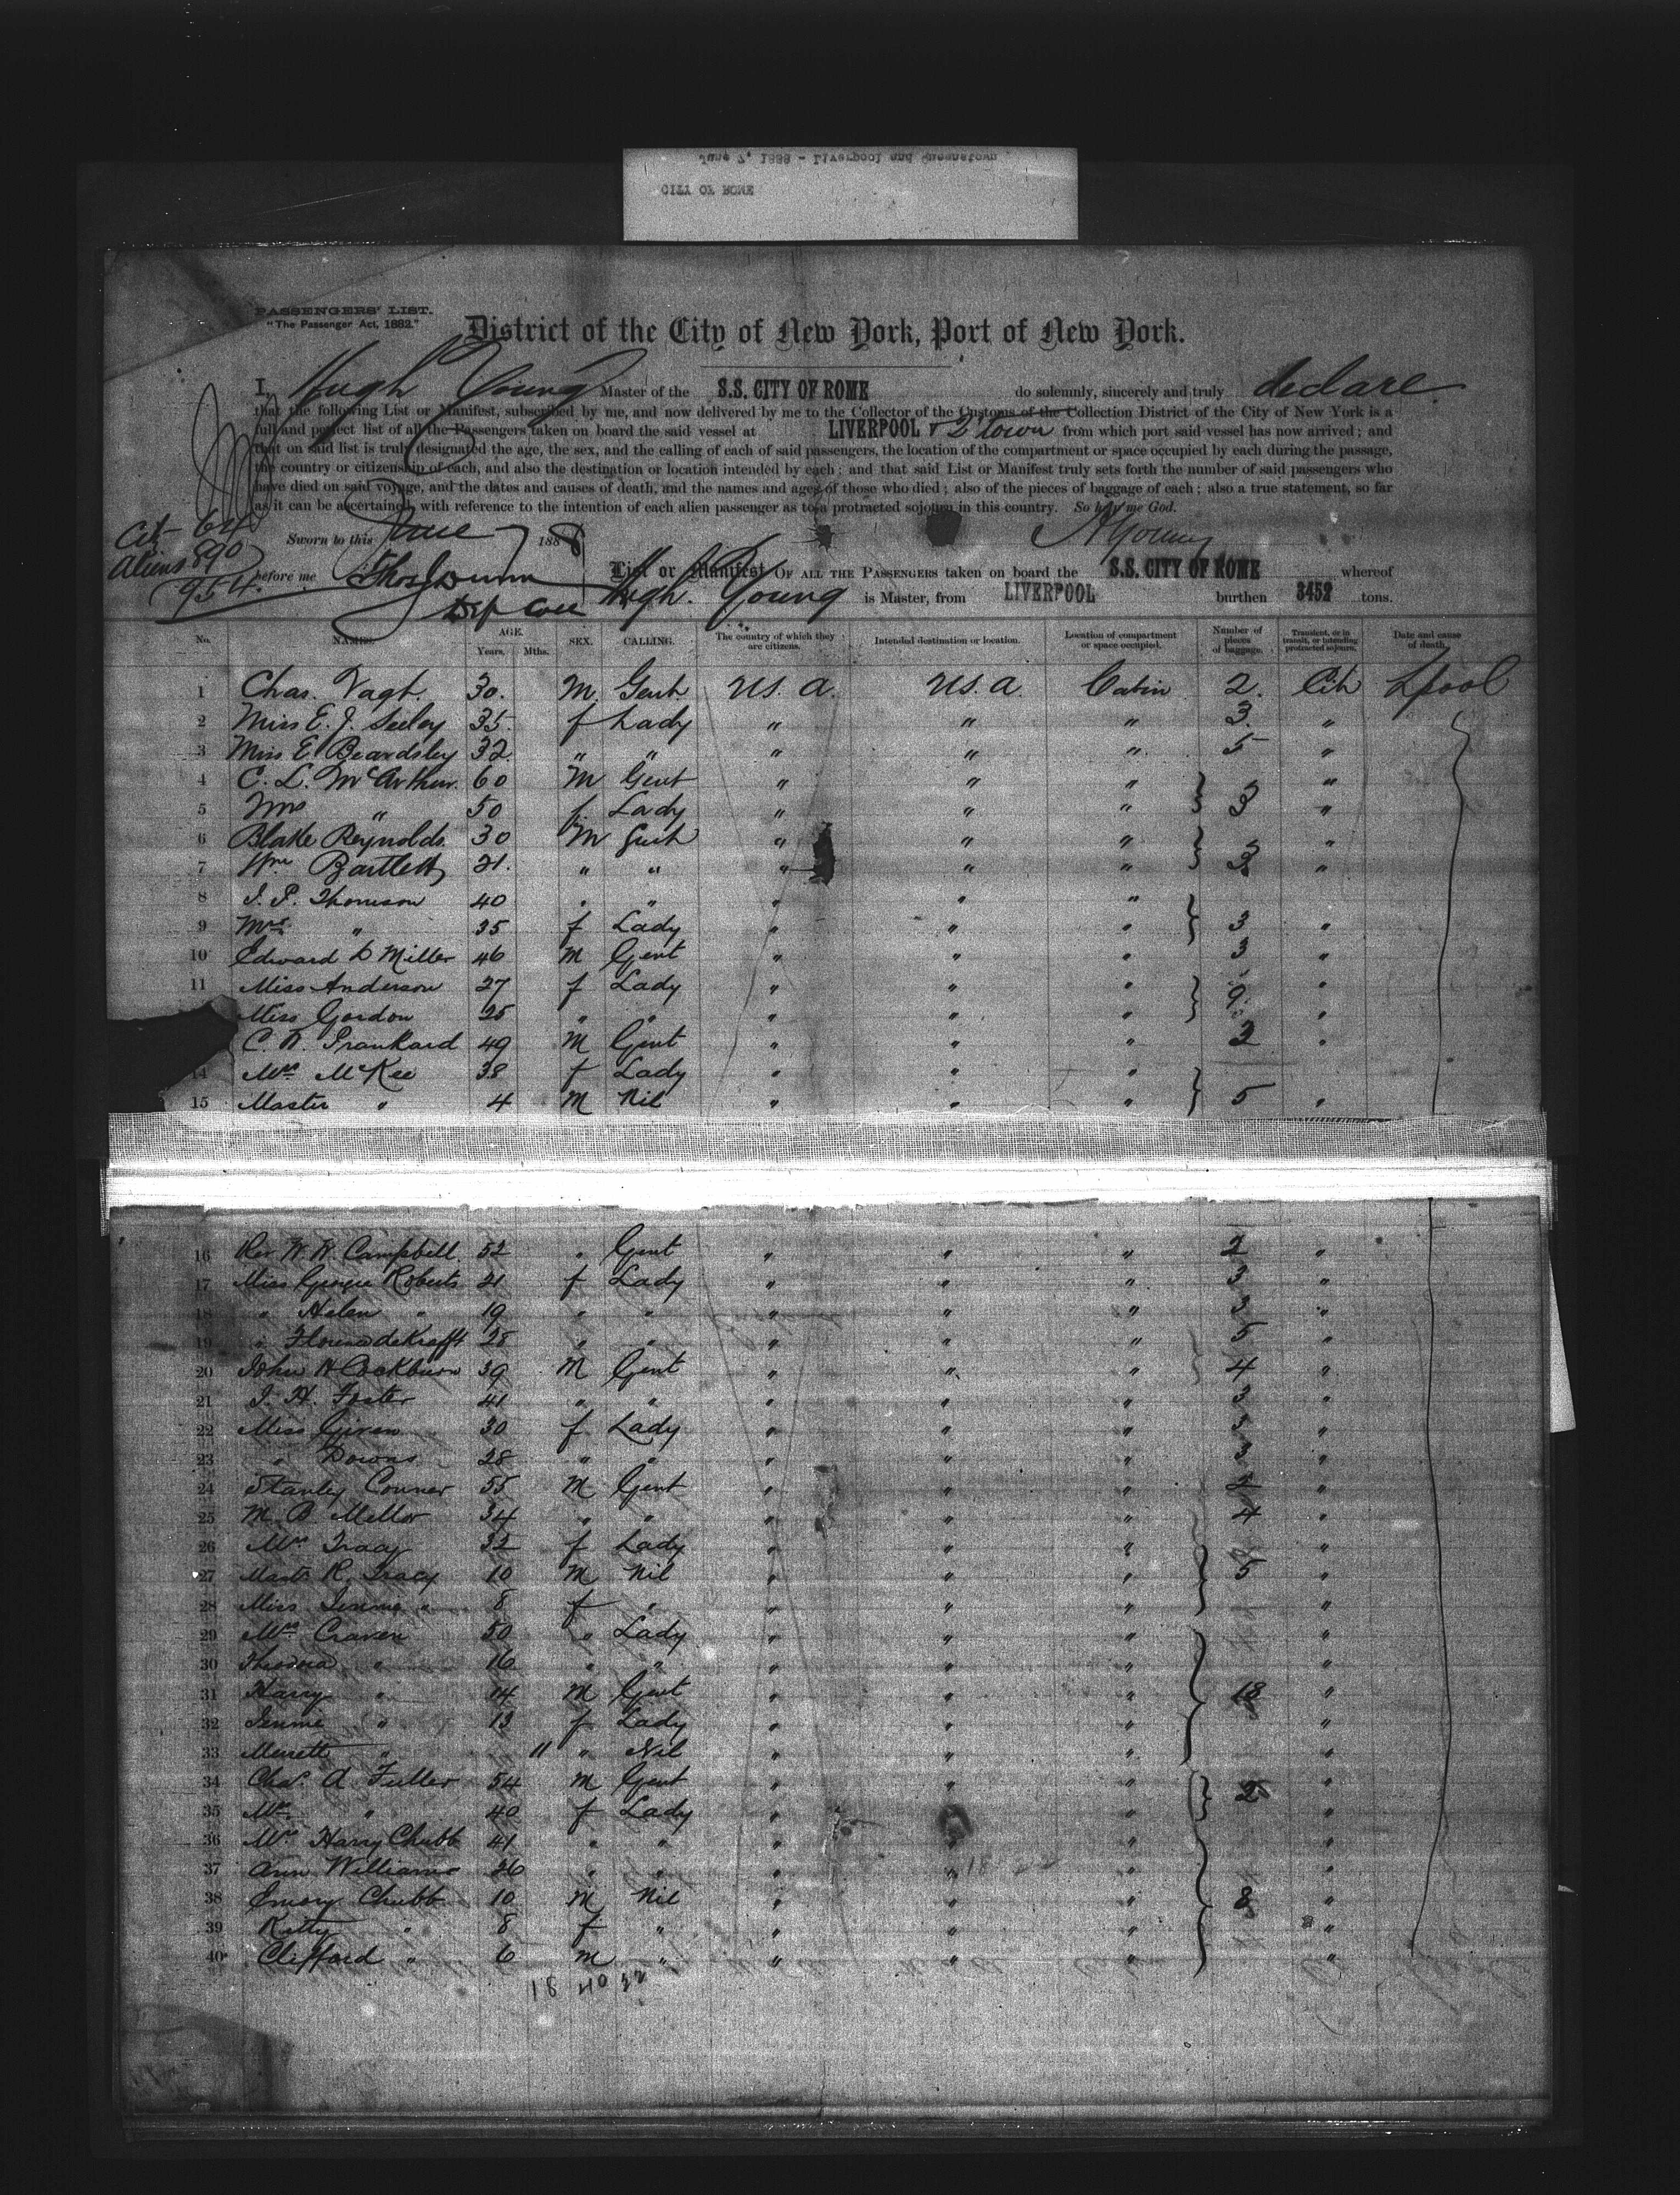 June 7, 1888 - Liverpool and Queenstown
CITY OF ROME
PASSENGERS' LIST.
"The Passenger Act, 1882."
District of the City of New York, Port of New York.
I, Hugh Young Master of the S.S. CITY OF ROME do solemnly, sincerely and truly declare
that the following List or Manifest, subscribed by me, and now delivered by me to the Collector of the Customs of the Collection District of the City of New York is a
full and perfect list of all the Passengers taken on board the said vessel at LIVERPOOL & Q'town from which port said vessel has now arrived; and
that on said list is truly designated the age, the sex, and the calling of each of said passengers, the location of the compartment or space occupied by each during the passage,
the country or citizenship of each, and also the destination or location intended by each; and that said List or Manifest truly sets forth the number of said passengers who
have died on said voyage, and the dates and causes of death, and the names and ages of those who died; also of the pieces of baggage of each; also a true statement, so far
as it can be ascertained, with reference to the intention of each alien passenger as to a protracted sojourn in this country. So help me God.
Cit- 64
Aliens 890
954
Sworn to this June 7 1888 HYoung
before me Thos Dunn
Dep Coll
List or Manifest OF ALL THE PASSENGERS taken on board the S.S. CITY OF ROME whereof
Hugh. Young is Master, from LIVERPOOL burthen 3452 tons.
No. NAMES. AGE. Years. Mths. SEX. CALLING. The country of which they are citizens. Intended destination or location. Location of compartment or space occupied. Number of pieces of baggage. Transient, or in transit, or intending protracted sojourn. Date and cause of death.
1 Chas. Vagt. 30. M Gent U.S.A. U.S.A Cabin 2. Cit Lpool
2 Miss E. J. Seeley 35. f Lady " " " 3. "
3 Miss E Beardsley 32. " " " " " 5 "
4 C. L. McArthur. 60 M Gent " " " "
5 Mrs " 50 f. Lady " " " 3 "
6 Blake Reynolds. 30 M Gent " " " "
7 Wm Bartlett 21. " " " " " 3 "
8 J. P. Thomson 40 " " " " "
9 Mrs " 35 f Lady " " " 3 "
10 Edward D Miller 46 M Gent " " " 3 "
11 Miss Anderson 27 f Lady " " " 9 "
Miss Gordon 25 " " " " " "
C. N. Prankard 49 M Gent " " " 2 "
14 Mrs McKee 38 f Lady " " "
15 Master " 4 M Nil " " " 5 "
16 Rev W. W. Campbell 52 " Gent " " " 2 "
17 Miss Georgie Roberts 21 f Lady " " " 3 "
18 " Helen " 19 " " " " " 3 "
19 " Florence deKrafft 28 " " " " " 5 "
20 John H Cockburn 39 M Gent " " " 4 "
21 J. H. Foster 41 " " " " " 3 "
22 Miss Given 30 f Lady " " " 3 "
23 " Downs 28 " " " " " 3 "
24 Stanley Conner 55 M Gent " " " 2 "
25 M. B Mellor 34 " " " " " 4 "
26 Mrs Tracy 32 f Lady " " " "
27 Mastr R. Tracy 10 M Nil " " " 5 "
28 Miss Jennie " 8 f " " " " "
29 Mrs Craven 50 " Lady " " " "
30 Theodora " 16 " " " " " "
31 Harry " 14 M Gent " " " 18 "
32 Jennie " 13 f Lady " " " "
33 Merrett " 11 " Nil " " " "
34 Chas. A Fuller 54 M Gent " " " 2 "
35 Mrs " 40 f Lady " " " "
36 Mrs Harry Chubb 41 " " " " " "
37 Ann Williams 26 " " " " " "
38 Emory Chubb 10 M Nil " " " 8 "
39 Kitty " 8 f " " " " "
40 Clifford " 6 M " " " " "
18 40 22